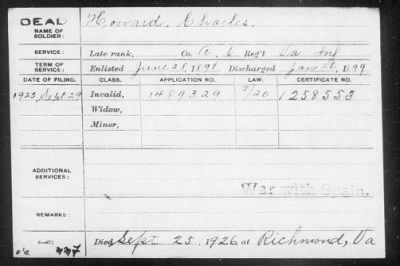 DEAD
NAME OF SOLDIER:
Howard, Charles.
SERVICE:
Late rank, Co. Reg't Inf
TERM OF SERVICE:
Enlisted June 28, 1898 Discharged Jan 1899
DATE OF FILING. CLASS. APPLICATION NO. LAW. CERTIFICATE NO.
1922 Sept 29 Invalid, 1489329 1258553
Widow,
Minor,
ADDITIONAL SERVICES:
War with Spain.
REMARKS:
Died Sept 25, 1926 at Richmond, Va